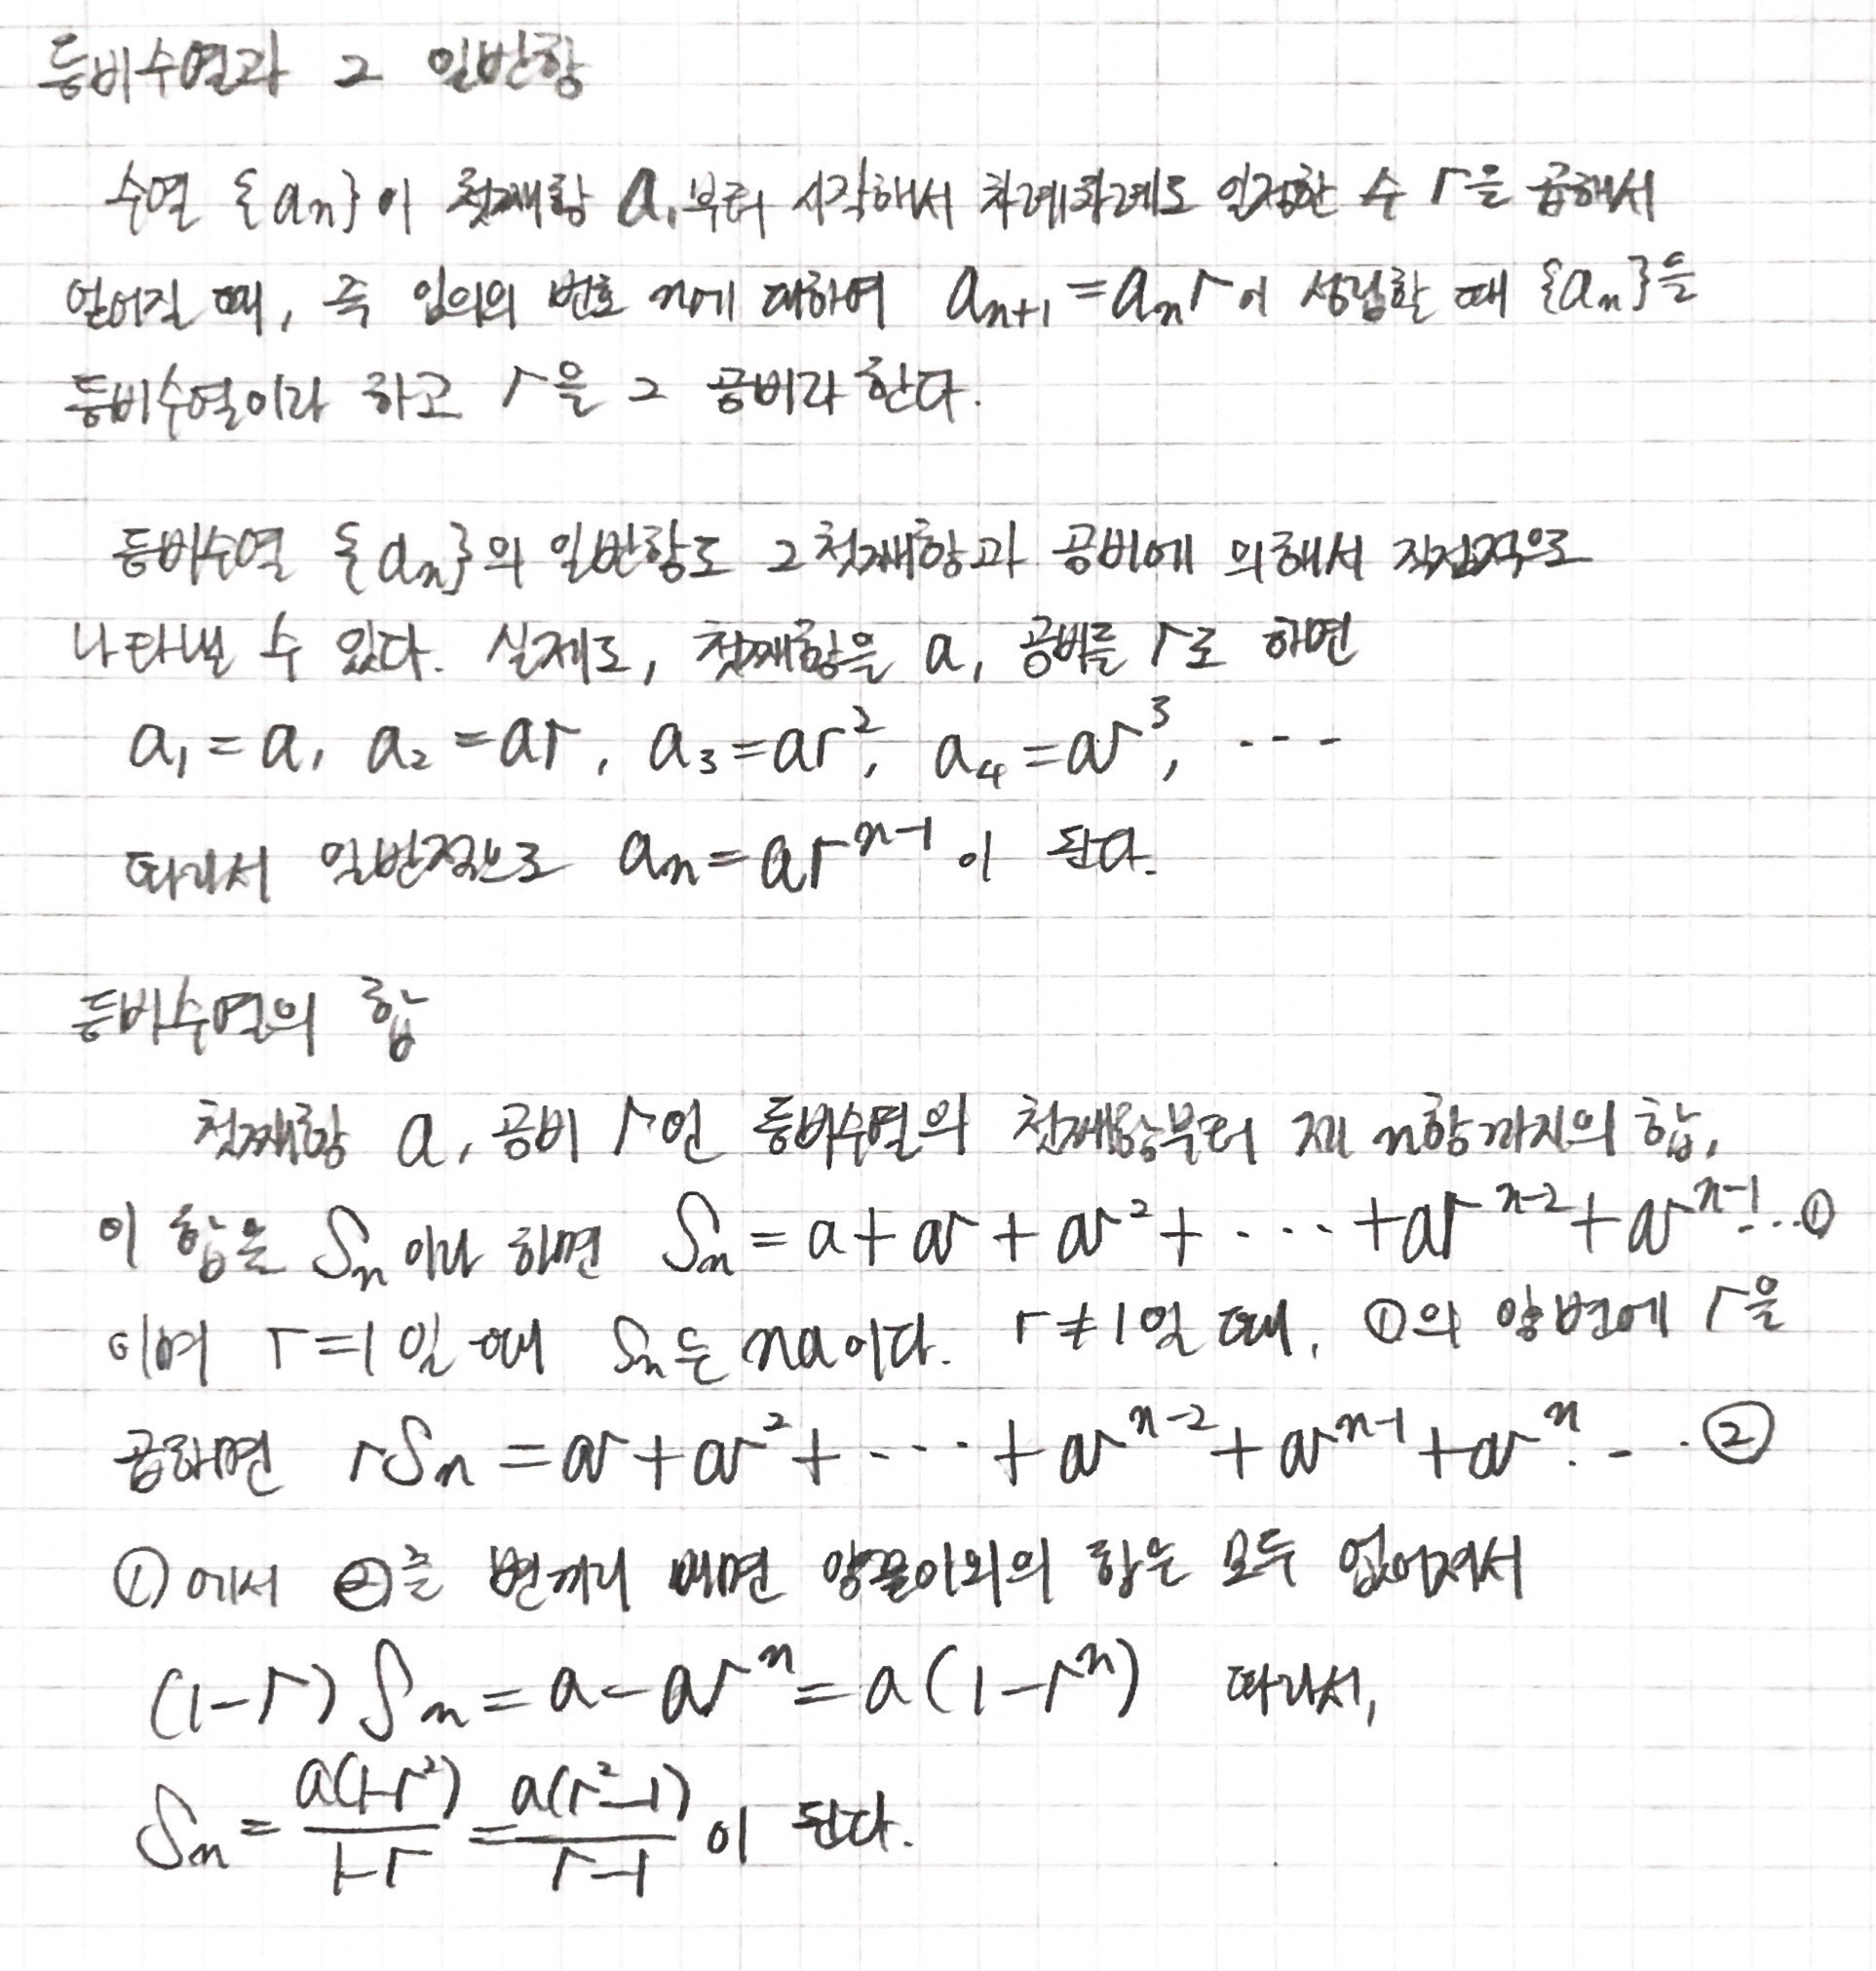 등비수열과 그 일반항
수열 {aₙ}이 첫째항 a₁부터 시작해서 차례차례로 일정한 수 r을 곱해서
얻어질 때, 즉 임의의 번호 n에 대하여 aₙ₊₁ = aₙr이 성립할 때 {aₙ}을
등비수열이라 하고 r을 그 공비라 한다.
등비수열 {aₙ}의 일반항도 그 첫째항과 공비에 의해서 직접적으로
나타낼 수 있다. 실제로, 첫째항을 a, 공비를 r로 하면
a₁ = a, a₂ = ar, a₃ = ar², a₄ = ar³, ---
따라서 일반적으로 aₙ = arⁿ⁻¹이 된다.
등비수열의 합
첫째항 a, 공비 r인 등비수열의 첫째항부터 제 n항까지의 합,
이 합을 Sₙ이라 하면 Sₙ = a + ar + ar² + ···· + arⁿ⁻² + arⁿ⁻¹ ··· ①
이며 r = 1일 때 Sₙ은 na이다. r ≠ 1일 때, ①의 양변에 r을
곱하면 rSₙ = ar + ar² + ···· + arⁿ⁻² + arⁿ⁻¹ + arⁿ ··· ②
①에서 ②를 변끼리 빼면 양끝이외의 항은 모두 없어져서
(1-r)Sₙ = a - arⁿ = a(1-rⁿ) 따라서,
Sₙ = a(1-r²)/(1-r) = a(r²-1)/(r-1) 이 된다.